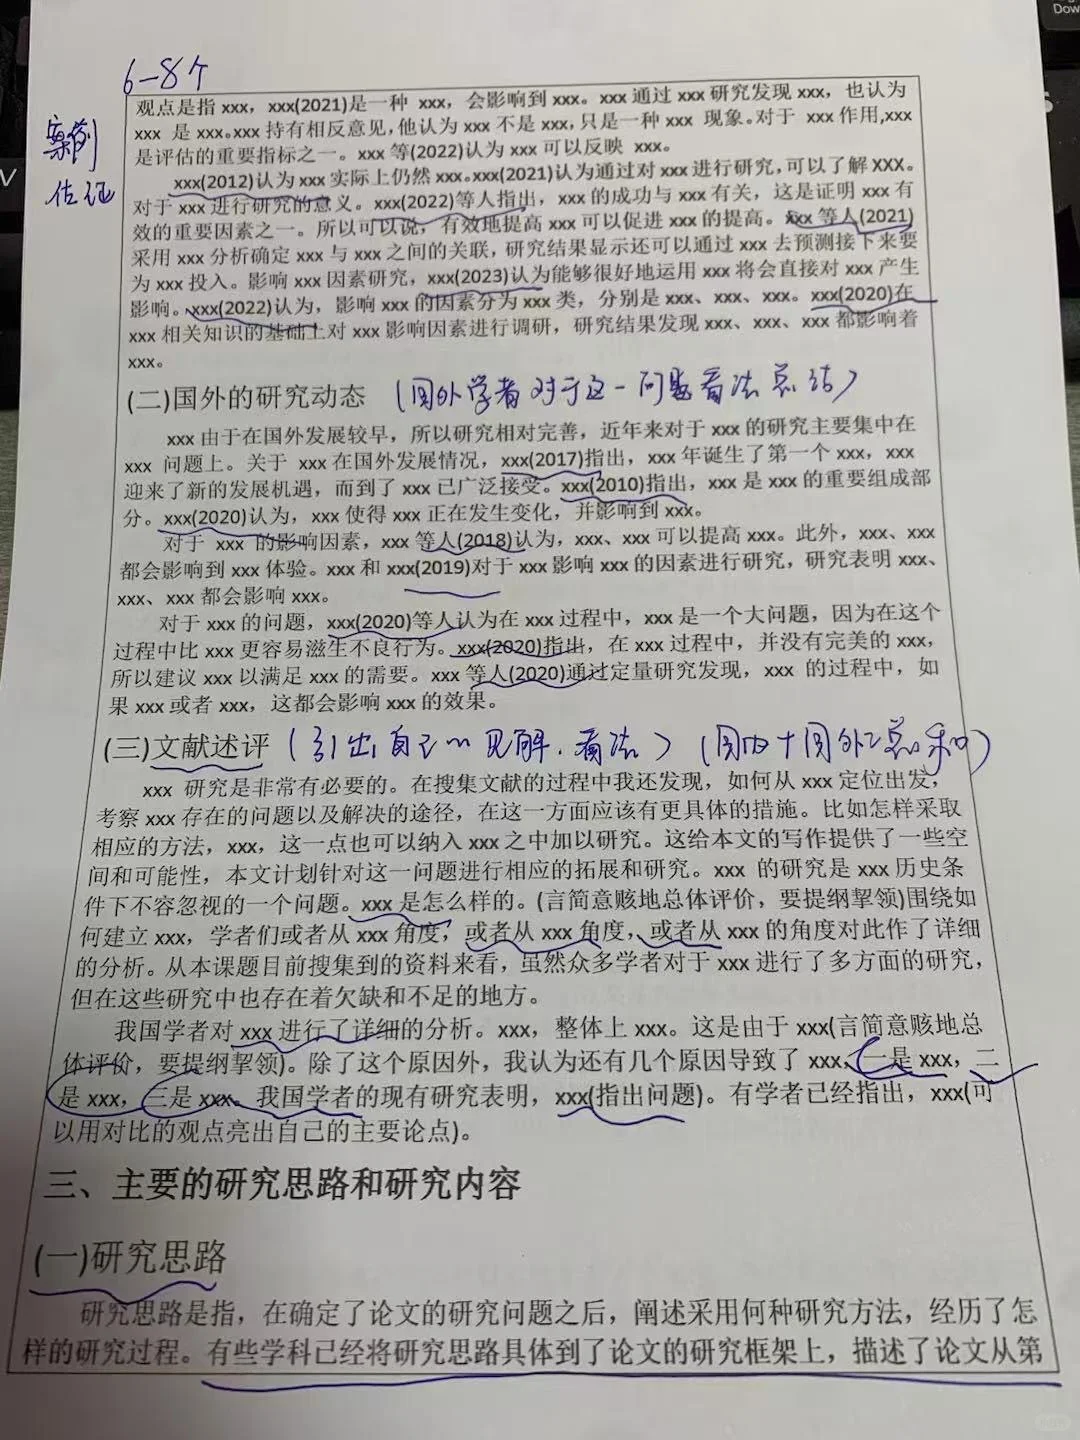 6-8个
案例
佐证
观点是指 xxx，xxx(2021)是一种 xxx，会影响到 xxx。xxx 通过 xxx 研究发现 xxx，也认为
xxx 是 xxx。xxx 持有相反意见，他认为 xxx 不是 xxx，只是一种 xxx 现象。对于 xxx 作用，xxx
是评估的重要指标之一。xxx 等(2022)认为 xxx 可以反映 xxx。
xxx(2012)认为 xxx 实际上仍然 xxx。xxx(2021)认为通过对 xxx 进行研究，可以了解 XXX。
对于 xxx 进行研究的意义。xxx(2022)等人指出，xxx 的成功与 xxx 有关，这是证明 xxx 有
效的重要因素之一。所以可以说，有效地提高 xxx 可以促进 xxx 的提高。xxx 等人(2021)
采用 xxx 分析确定 xxx 与 xxx 之间的关联，研究结果显示还可以通过 xxx 去预测接下来要
为 xxx 投入。影响 xxx 因素研究，xxx(2023)认为能够很好地运用 xxx 将会直接对 xxx 产生
影响。xxx(2022)认为，影响 xxx 的因素分为 xxx 类，分别是 xxx、xxx、xxx。xxx(2020)在
xxx 相关知识的基础上对 xxx 影响因素进行调研，研究结果发现 xxx、xxx、xxx 都影响着
xxx。
(二)国外的研究动态 (国外学者对于这一问题看法总结)
xxx 由于在国外发展较早，所以研究相对完善，近年来对于 xxx 的研究主要集中在
xxx 问题上。关于 xxx 在国外发展情况，xxx(2017)指出，xxx 年诞生了第一个 xxx，xxx
迎来了新的发展机遇，而到了 xxx 已广泛接受。xxx(2010)指出，xxx 是 xxx 的重要组成部
分。xxx(2020)认为，xxx 使得 xxx 正在发生变化，并影响到 xxx。
对于 xxx 的影响因素，xxx 等人(2018)认为，xxx、xxx 可以提高 xxx。此外，xxx、xxx
都会影响到 xxx 体验。xxx 和 xxx(2019)对于 xxx 影响 xxx 的因素进行研究，研究表明 xxx、
xxx、xxx 都会影响 xxx。
对于 xxx 的问题，xxx(2020)等人认为在 xxx 过程中，xxx 是一个大问题，因为在这个
过程中比 xxx 更容易滋生不良行为。xxx(2020)指出，在 xxx 过程中，并没有完美的 xxx，
所以建议 xxx 以满足 xxx 的需要。xxx 等人(2020)通过定量研究发现，xxx 的过程中，如
果 xxx 或者 xxx，这都会影响 xxx 的效果。
(三)文献述评 (引出自己的见解、看法) (国内+国外之总和)
xxx 研究是非常有必要的。在搜集文献的过程中我还发现，如何从 xxx 定位出发，
考察 xxx 存在的问题以及解决的途径，在这一方面应该有更具体的措施。比如怎样采取
相应的方法，xxx，这一点也可以纳入 xxx 之中加以研究。这给本文的写作提供了一些空
间和可能性，本文计划针对这一问题进行相应的拓展和研究。xxx 的研究是 xxx 历史条
件下不容忽视的一个问题。xxx 是怎么样的。(言简意赅地总体评价，要提纲挈领)围绕如
何建立 xxx，学者们或者从 xxx 角度，或者从 xxx 角度，或者从 xxx 的角度对此作了详细
的分析。从本课题目前搜集到的资料来看，虽然众多学者对于 xxx 进行了多方面的研究，
但在这些研究中也存在着欠缺和不足的地方。
我国学者对 xxx 进行了详细的分析。xxx，整体上 xxx。这是由于 xxx(言简意赅地总
体评价，要提纲挈领)。除了这个原因外，我认为还有几个原因导致了 xxx、一是 xxx，二
是 xxx，三是 xxx。我国学者的现有研究表明，xxx(指出问题)。有学者已经指出，xxx(可
以用对比的观点亮出自己的主要论点)。
三、主要的研究思路和研究内容
(一)研究思路
研究思路是指，在确定了论文的研究问题之后，阐述采用何种研究方法，经历了怎
样的研究过程。有些学科已经将研究思路具体到了论文的研究框架上，描述了论文从第